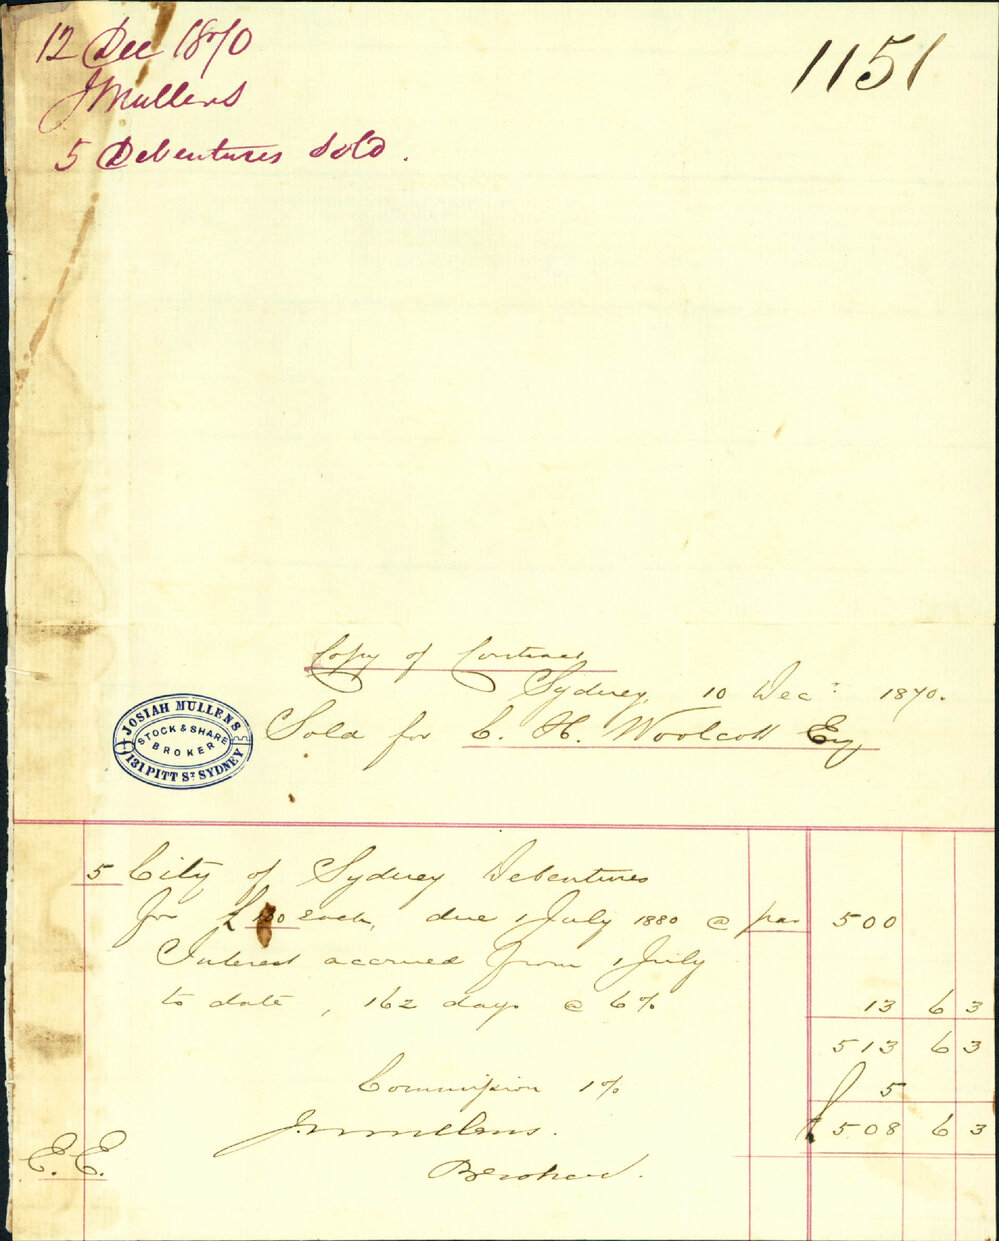 12 Dec 1870
J Mullens
5 Debentures sold.
1151
Copy of Contract
Sydney, 10 Decr. 1870.
Sold for C. H. Woolcott Esq
JOSIAH MULLENS
STOCK & SHARE
BROKER
131 PITT ST SYDNEY
5 City of Sydney Debentures
for £100 each, due 1 July 1880 @ par 500
Interest accrued from 1 July
to date, 162 days @ 6% 13 6 3
513 6 3
Commission 1% 5
£508 6 3
J Mullens.
E. E.